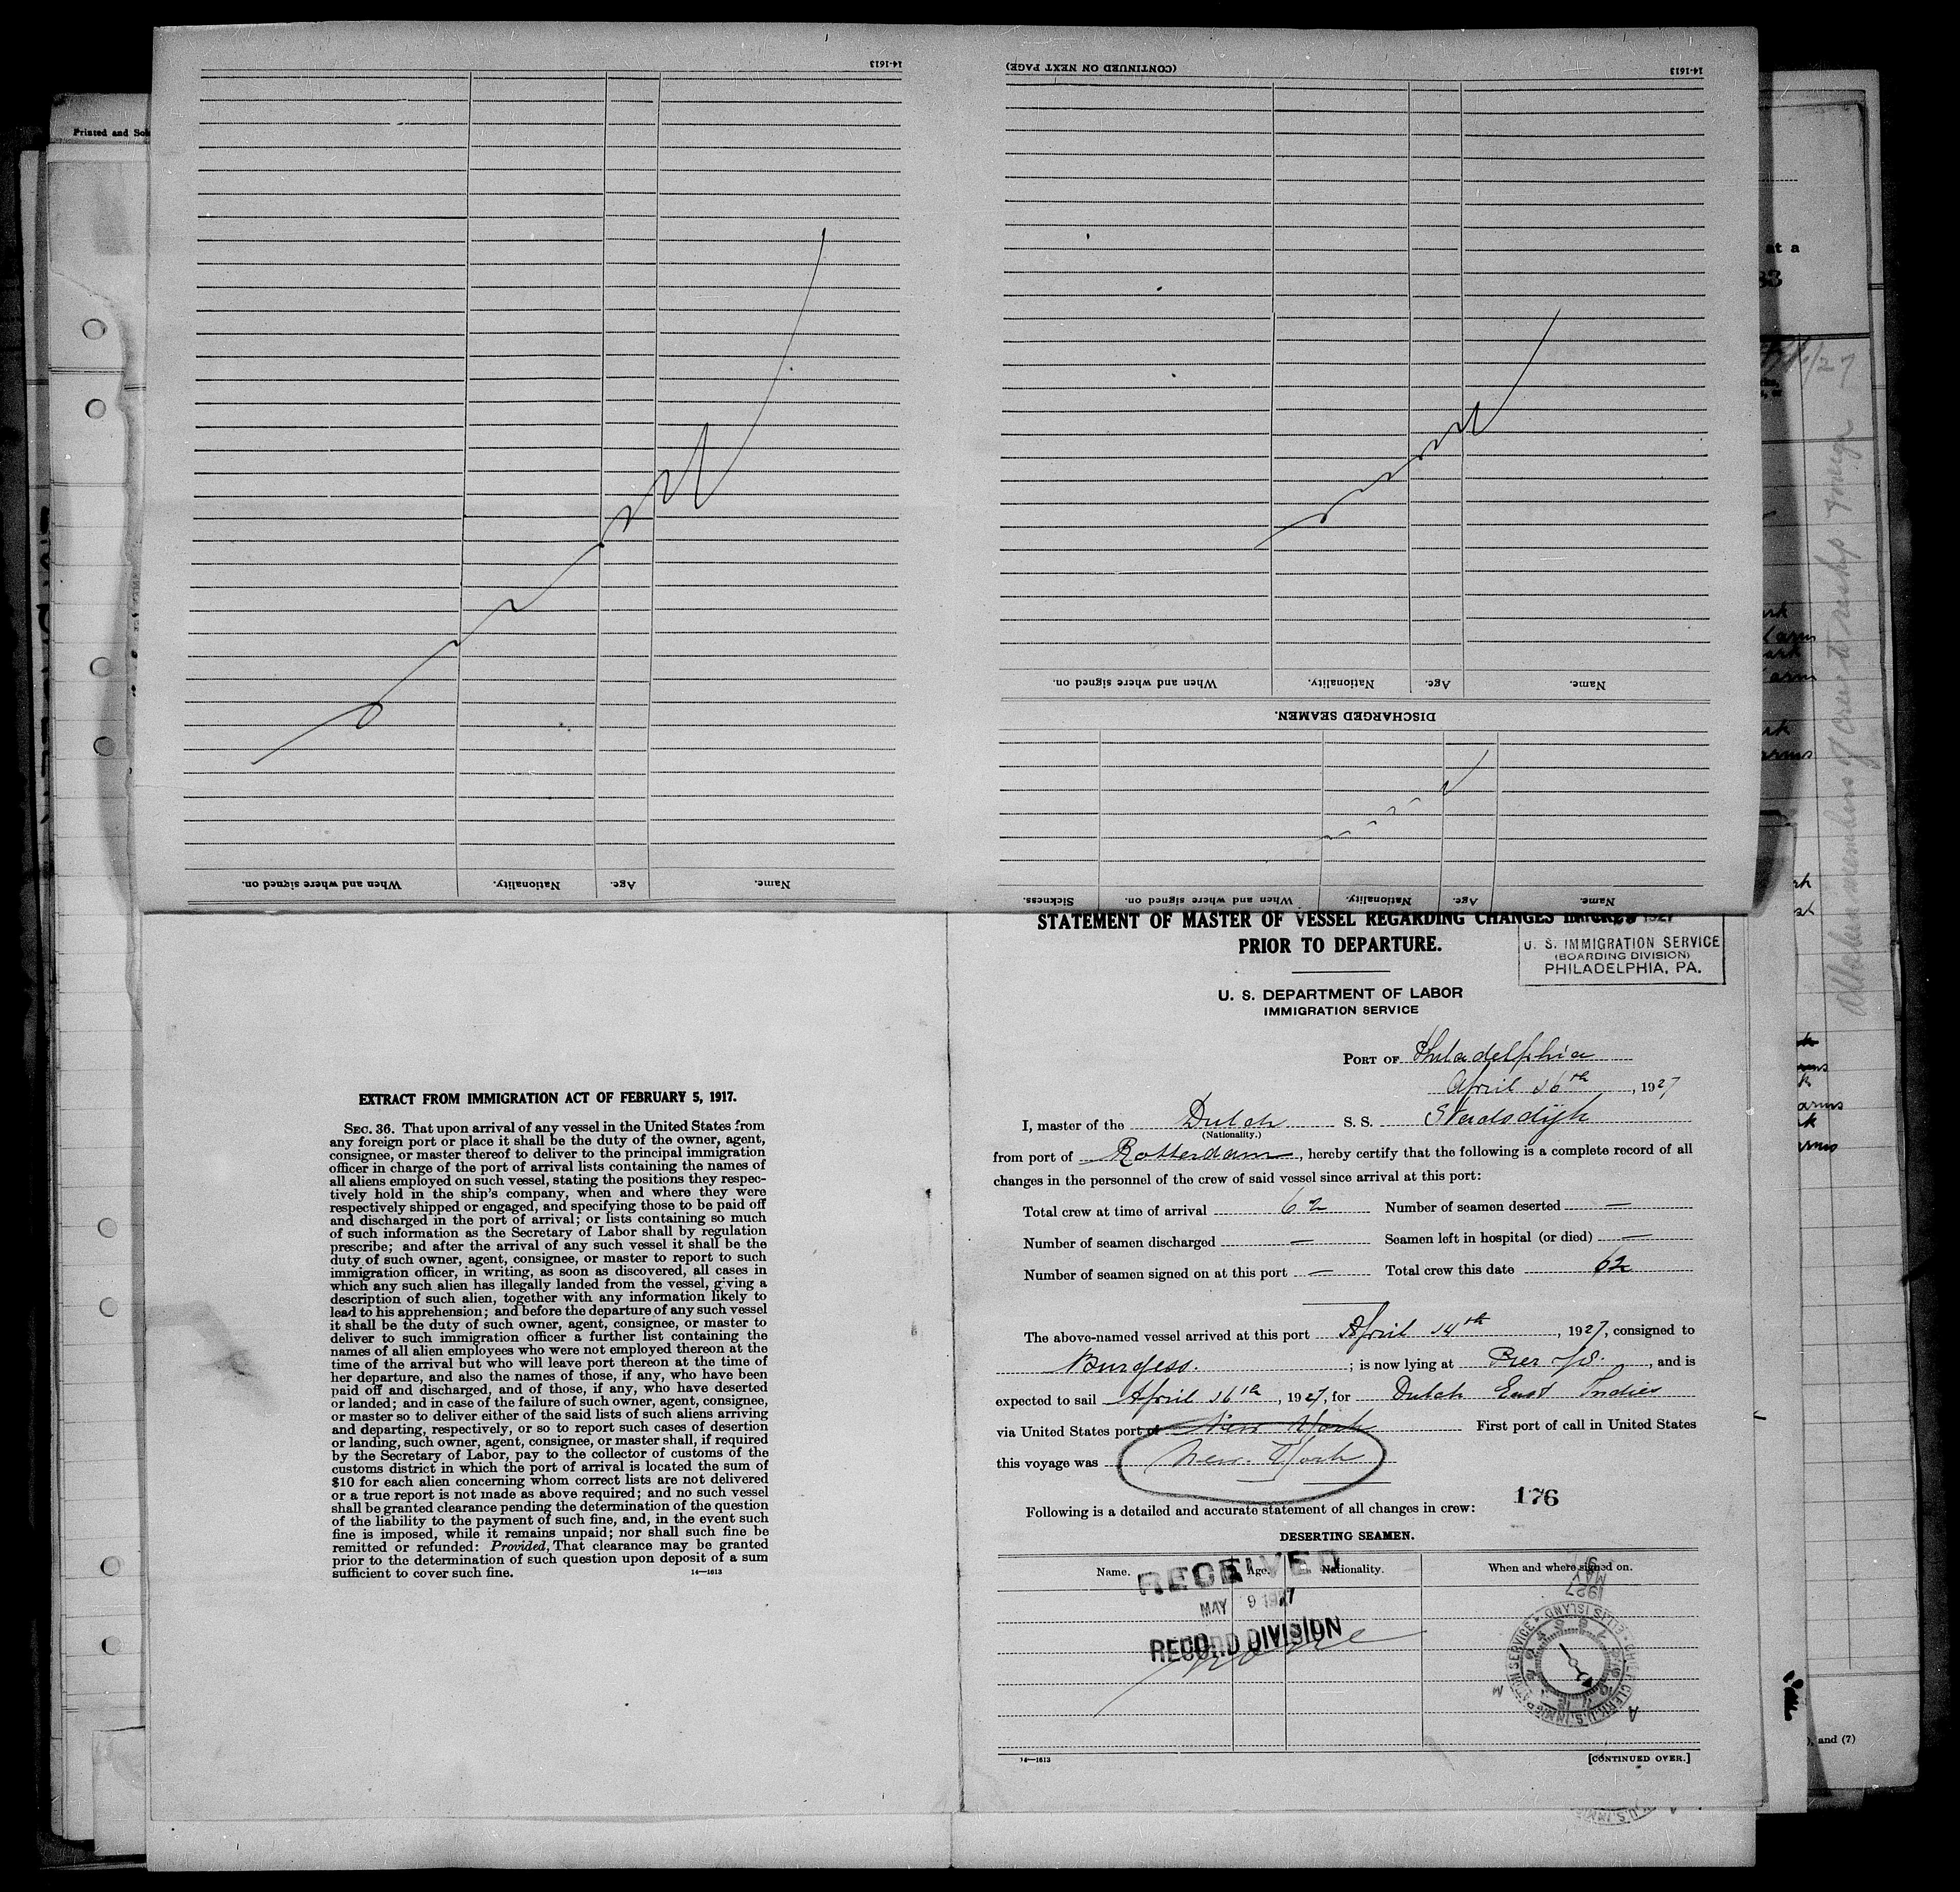 14-1613
(CONTINUED ON NEXT PAGE)
14-1613
Printed and Sol
When and where signed on.
Nationality.
Age.
Name.
DISCHARGED SEAMEN.
Name.
Age.
Nationality.
When and where signed on.
Name.
Age.
Nationality.
When and where signed on.
Sickness.
at a
/27
All alien members of crew to reship foreign
, and (7)
EXTRACT FROM IMMIGRATION ACT OF FEBRUARY 5, 1917.
SEC. 36. That upon arrival of any vessel in the United States from
any foreign port or place it shall be the duty of the owner, agent,
consignee, or master thereof to deliver to the principal immigration
officer in charge of the port of arrival lists containing the names of
all aliens employed on such vessel, stating the positions they respec-
tively hold in the ship's company, when and where they were
respectively shipped or engaged, and specifying those to be paid off
and discharged in the port of arrival; or lists containing so much
of such information as the Secretary of Labor shall by regulation
prescribe; and after the arrival of any such vessel it shall be the
duty of such owner, agent, consignee, or master to report to such
immigration officer, in writing, as soon as discovered, all cases in
which any such alien has illegally landed from the vessel, giving a
description of such alien, together with any information likely to
lead to his apprehension; and before the departure of any such vessel
it shall be the duty of such owner, agent, consignee, or master to
deliver to such immigration officer a further list containing the
names of all alien employees who were not employed thereon at the
time of the arrival but who will leave port thereon at the time of
her departure, and also the names of those, if any, who have been
paid off and discharged, and of those, if any, who have deserted
or landed; and in case of the failure of such owner, agent, consignee,
or master so to deliver either of the said lists of such aliens arriving
and departing, respectively, or so to report such cases of desertion
or landing, such owner, agent, consignee, or master shall, if required
by the Secretary of Labor, pay to the collector of customs of the
customs district in which the port of arrival is located the sum of
$10 for each alien concerning whom correct lists are not delivered
or a true report is not made as above required; and no such vessel
shall be granted clearance pending the determination of the question
of the liability to the payment of such fine, and, in the event such
fine is imposed, while it remains unpaid; nor shall such fine be
remitted or refunded: Provided, That clearance may be granted
prior to the determination of such question upon deposit of a sum
sufficient to cover such fine.
14—1613
STATEMENT OF MASTER OF VESSEL REGARDING CHANGES IN CREW
PRIOR TO DEPARTURE.
1927
U. S. IMMIGRATION SERVICE
(BOARDING DIVISION)
PHILADELPHIA, PA.
U. S. DEPARTMENT OF LABOR
IMMIGRATION SERVICE
PORT OF Philadelphia
April 16th, 1927
I, master of the Dutch S. S. Stadsdijk
(Nationality.)
from port of Rotterdam, hereby certify that the following is a complete record of all
changes in the personnel of the crew of said vessel since arrival at this port:
Total crew at time of arrival 62 Number of seamen deserted —
Number of seamen discharged — Seamen left in hospital (or died) —
Number of seamen signed on at this port — Total crew this date 62
The above-named vessel arrived at this port April 14th, 1927, consigned to
Burgess. ; is now lying at Pier 78., and is
expected to sail April 16th, 1927, for Dutch East Indies
via United States port of New York First port of call in United States
this voyage was New York
176
Following is a detailed and accurate statement of all changes in crew:
DESERTING SEAMEN.
Name. Age. Nationality. When and where signed on.
RECEIVED
MAY 9 1927
RECORD DIVISION
none
MAY 9
1927
CHIEF CLERK, U.S. IMMIGRATION SERVICE ELLIS ISLAND
14—1613
[CONTINUED OVER.]